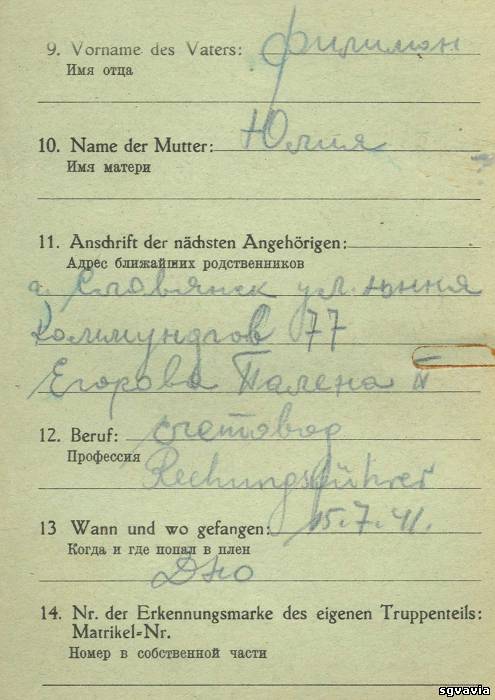 9. Vorname des Vaters: филимон
Имя отца
10. Name der Mutter: Юлия
Имя матери
11. Anschrift der nächsten Angehörigen:
Адрес ближайших родственников
г. Славянск ул.
77
Егорова
12. Beruf: счетовод
Профессия
Rechnungsführer
13 Wann und wo gefangen: 15.7.41.
Когда и где попал в плен
Дно
14. Nr. der Erkennungsmarke des eigenen Truppenteils:
Matrikel=Nr.
Номер в собственной части
sgvavia